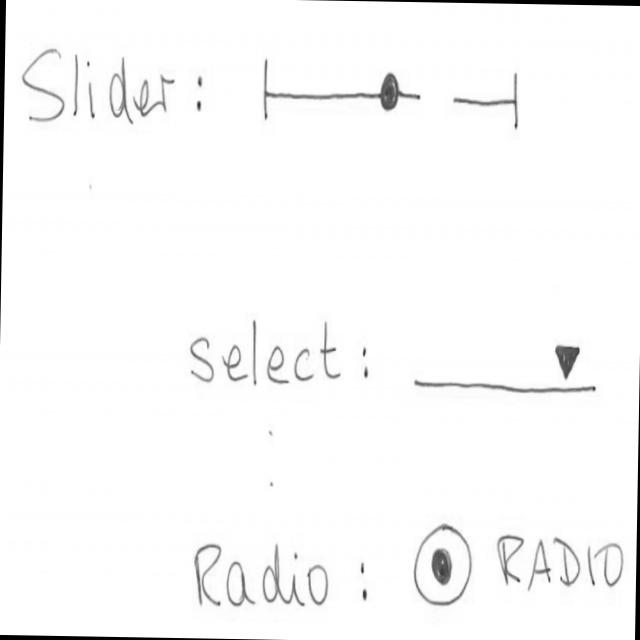 Slider:
select:
Radio: RADIO